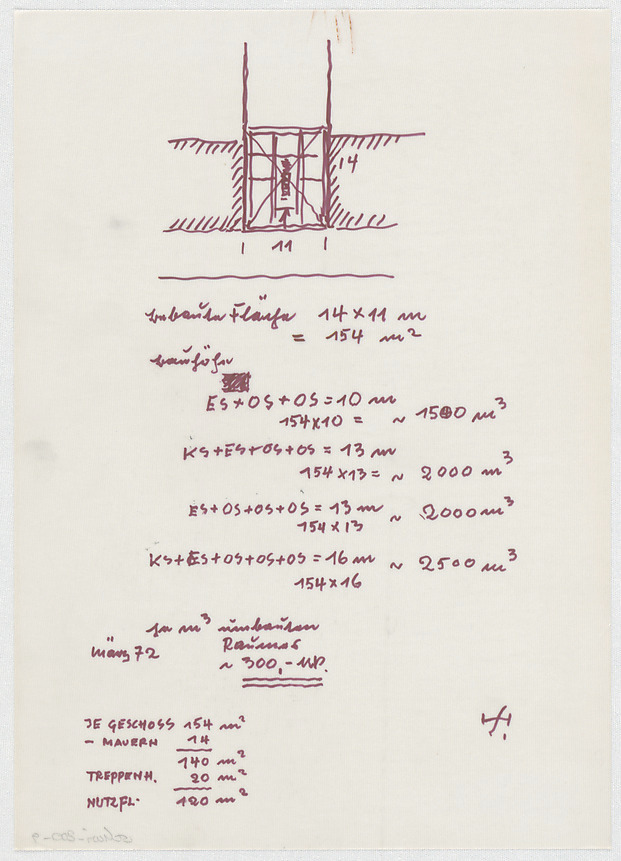 14
11
bebaute Fläche 14 x 11 m
= 154 m²
Bauhöhe
ES + OS + OS = 10 m
154 x 10 = ~ 1500 m³
KS + ES + OS + OS = 13 m
154 x 13 = ~ 2000 m³
ES + OS + OS + OS = 13 m ~ 2000 m³
154 x 13
KS + ES + OS + OS + OS = 16 m ~ 2500 m³
154 x 16
je m³ umbauten
März 72 Raumes
~ 300,- MP.
JE GESCHOSS 154 m²
- MAUERN 14
140 m²
TREPPENH. 20 m²
NUTZFL. 120 m²